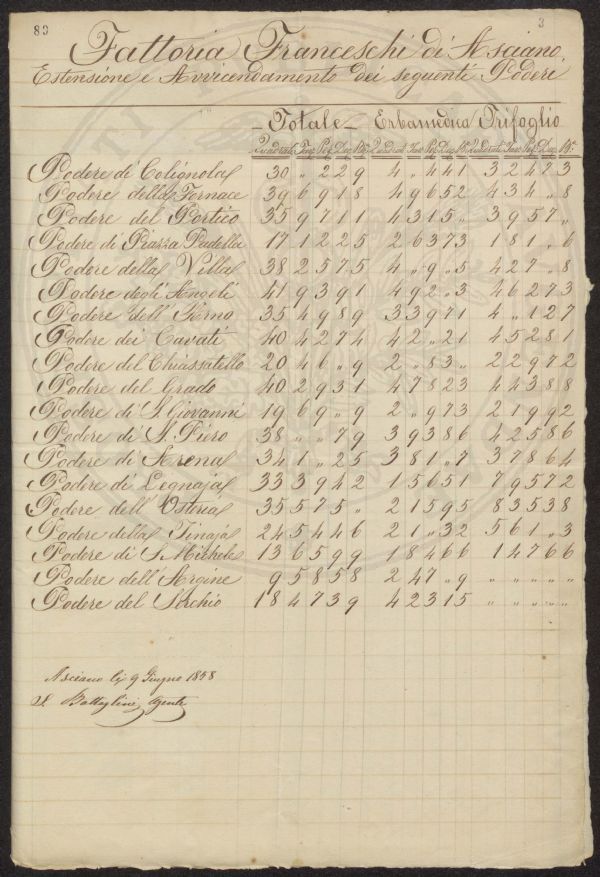 80 3
Fattoria Franceschi di Asciano,
Estensione e Avvicendamento dei seguenti Poderi
Totale Erbamedica Trifoglio
Quadrati Tav. Per. Dec. Bra Quadrati Tav. Per. Dec. Bra Quadrati Tav. Per. Dec. Bra
Podere di Colignola 30 „ 2 2 9 4 „ 4 4 1 3 2 4 7 3
Podere della Fornace 39 6 9 1 8 4 9 6 5 2 4 3 4 „ 8
Podere del Portico 35 9 7 1 1 4 3 1 5 „ 3 9 5 7 „
Podere di Piazza Padella 17 1 2 2 5 2 6 3 7 3 1 8 1 „ 6
Podere della Villa 38 2 5 7 5 4 „ 9 „ 5 4 2 7 „ 8
Podere degli Angeli 41 9 3 9 1 4 9 2 „ 3 4 6 2 7 3
Podere dell' Arno 35 4 9 8 9 3 3 9 7 1 4 „ 1 2 7
Podere dei Cavati 40 4 2 7 4 4 2 „ 2 1 4 5 2 8 1
Podere del Chiassatello 20 4 6 „ 9 2 „ 8 3 „ 2 2 9 7 2
Podere del Grado 40 2 9 3 1 4 7 8 2 3 4 4 3 8 8
Podere di S. Giovanni 19 6 9 „ 9 2 „ 9 7 3 2 1 9 9 2
Podere di S. Piero 38 „ „ 7 9 3 9 3 8 6 4 2 5 8 6
Podere di Arena 34 1 „ 2 5 3 8 1 „ 7 3 7 8 6 4
Podere di Legnaja 33 3 9 4 2 1 5 6 5 1 7 9 5 7 2
Podere dell' Osteria 35 5 7 5 „ 2 1 5 9 5 8 3 5 3 8
Podere della Tinaja 24 5 4 4 6 2 1 „ 3 2 5 6 1 „ 3
Podere di S. Michele 13 6 5 9 9 1 8 4 6 6 1 4 7 6 6
Podere dell' Argine 9 5 8 5 8 2 4 7 „ 9 „ „ „ „ „
Podere del Serchio 18 4 7 3 9 4 2 3 1 5 „ „ „ „ „
Asciano li 9 Giugno 1858
Battaglini Agente